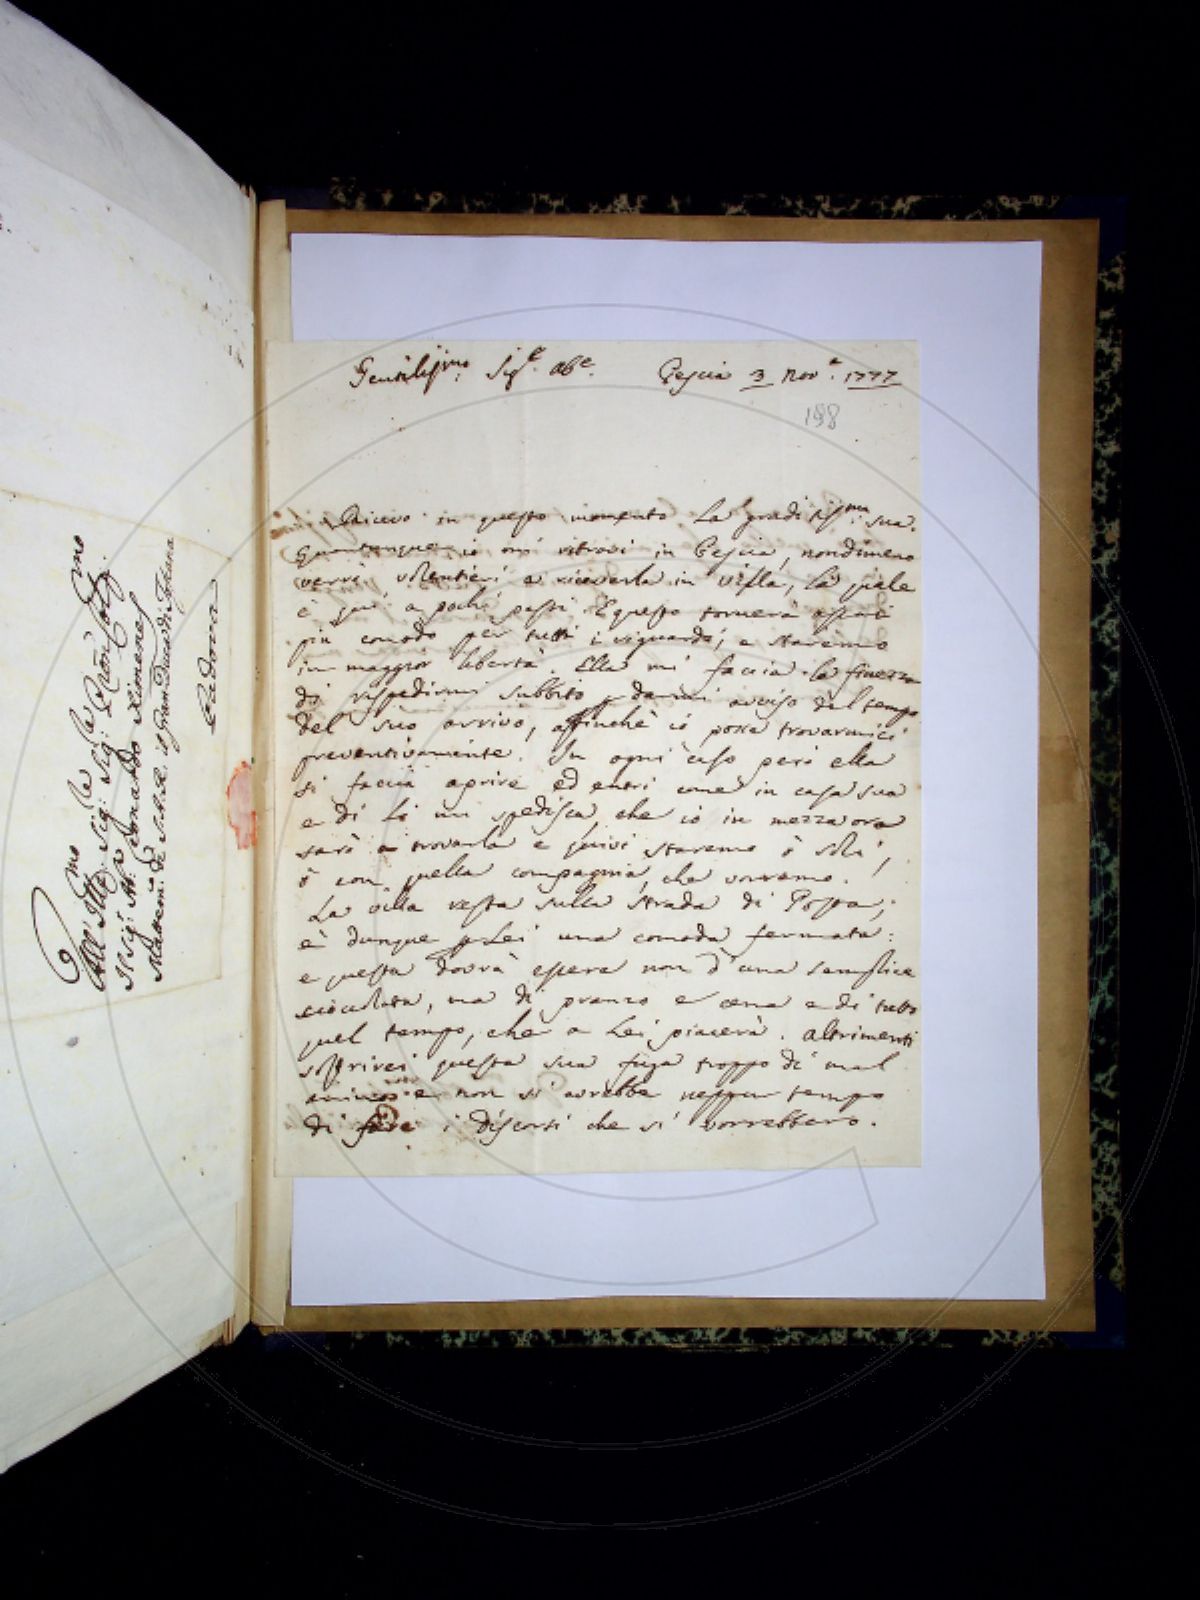 Gentiliss.mo Sig.e Ab.e Pescia 3 Nov.e 1777
198
Ricevo in questo momento la graditiss.ma sua.
Quantunque io mi ritrovi in Pescia, nondimeno
verrò volentieri a riceverla in villa, la quale
è qui a pochi passi. E questo tornerà assai
più comodo per tutti i riguardi, e staremo
in maggior libertà. Ella mi faccia la finezza
di rispedirmi subbito p darmi avviso del tempo
del suo arrivo, affinchè io possa trovarmici
preventivamente. In ogni caso però ella
si faccia aprire ed entri come in casa sua
e di lì mi spedisca, che io in mezza ora
sarò a trovarla e quivi staremo ò soli,
ò con quella compagnia, che vorremo.
La villa resta sulla strada di Posta;
è dunque p Lei una comoda fermata:
e questa dovrà essere non d'una semplice
cioccolata, ma di pranzo e cena e di tutto
quel tempo, che a Lei piacerà. Altrimenti
soffrirei questa sua fuga troppo di mal
animo e non si avrebbe neppur tempo
di fare i discorsi che si vorrebbero.
All' Ill.mo Sig.re Sig. Pron Col.mo
Il Sig.e Ab.e Leonardo Ximenes
Matem.co di S.A.R. il Gran Duca di Toscana
Padova